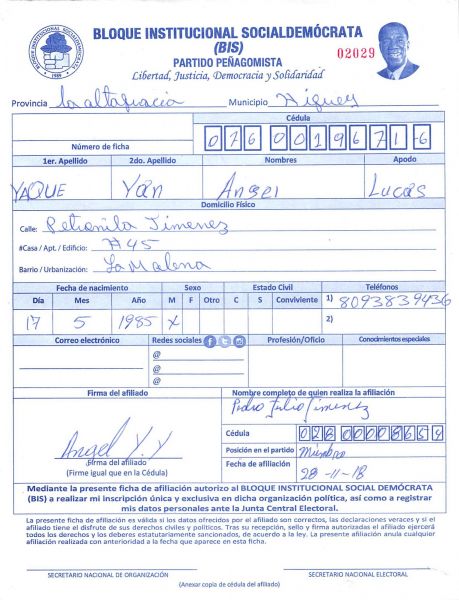 BLOQUE INSTITUCIONAL SOCIALDEMÓCRATA
(BIS)
PARTIDO PEÑAGOMISTA
Libertad, Justicia, Democracia y Solidaridad
02029
Provincia La altagracia Municipio Higuey
Cédula
Número de ficha 076 0019671-6
1er. Apellido 2do. Apellido Nombres Apodo
YAQUE Yan Angel Lucas
Domicilio Físico
Calle: Petronila Jimenez
#Casa / Apt. / Edificio: #45
Barrio / Urbanización: La Malena
Fecha de nacimiento Sexo Estado Civil Teléfonos
Día Mes Año M F Otro C S Conviviente 1) 8093839436
17 5 1985 X 2)
Correo electrónico Redes sociales Profesión/Oficio Conocimientos especiales
@
@
@
Firma del afiliado Nombre completo de quien realiza la afiliación
Pedro Julio Jimenez
Cédula 028 0000865
Angel Y. Y
Posición en el partido Miembro
Firma del afiliado
(Firme igual que en la Cédula)
Fecha de afiliación 28-11-18
Mediante la presente ficha de afiliación autorizo al BLOQUE INSTITUCIONAL SOCIAL DEMÓCRATA
(BIS) a realizar mi inscripción única y exclusiva en dicha organización política, así como a registrar
mis datos personales ante la Junta Central Electoral.
La presente ficha de afiliación es válida si los datos ofrecidos por el afiliado son correctos, las declaraciones veraces y si el
afiliado tiene el disfrute de sus derechos civiles y políticos. Tras su recepción, sello y firma autorizadas el afiliado ejercerá
todos los derechos y los deberes estatutariamente sancionados, de acuerdo a la ley. La presente afiliación anula cualquier
afiliación realizada con anterioridad a la fecha que aparece en esta ficha.
SECRETARIO NACIONAL DE ORGANIZACIÓN SECRETARIO NACIONAL ELECTORAL
(Anexar copia de cédula del afiliado)